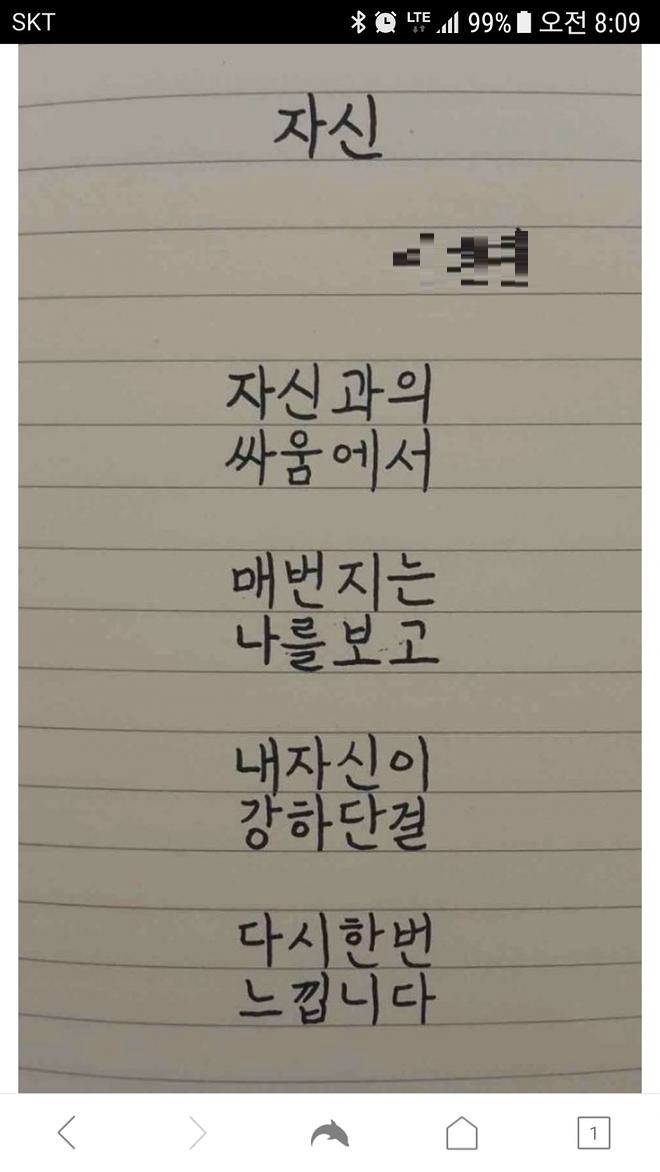 SKT LTE 99% 오전 8:09
자신
자신과의
싸움에서
매번지는
나를보고
내자신이
강하단결
다시한번
느낍니다
1